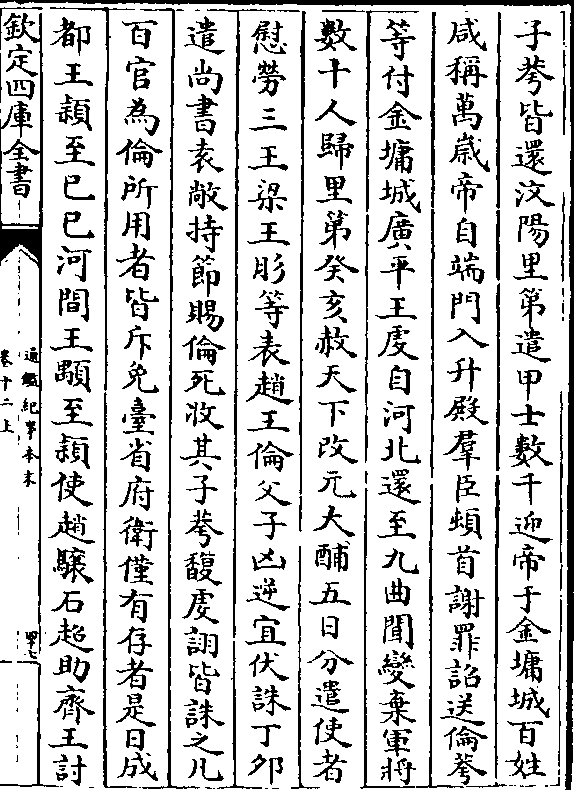 子荂皆還汶陽里第遣甲士數千迎帝于金墉城百姓
咸稱萬嵗帝自端門入升殿羣臣頓首謝罪詔送倫荂
等付金墉城廣平王䖍自河北還至九曲聞變棄軍將
數十人歸里第癸亥赦天下改元大酺五日分遣使者
慰勞三王梁王肜等表趙王倫父子凶逆宜伏誅丁夘
遣尚書袁敞持節賜倫死收其子荂馥䖍詡皆誅之凡
百官為倫所用者皆斥免臺省府衛僅有存者是日成
都王頴至己巳河間王顒至頴使趙驤石超助齊王討
欽定四庫全書
通鑑紀事本末
卷十二上
四十七